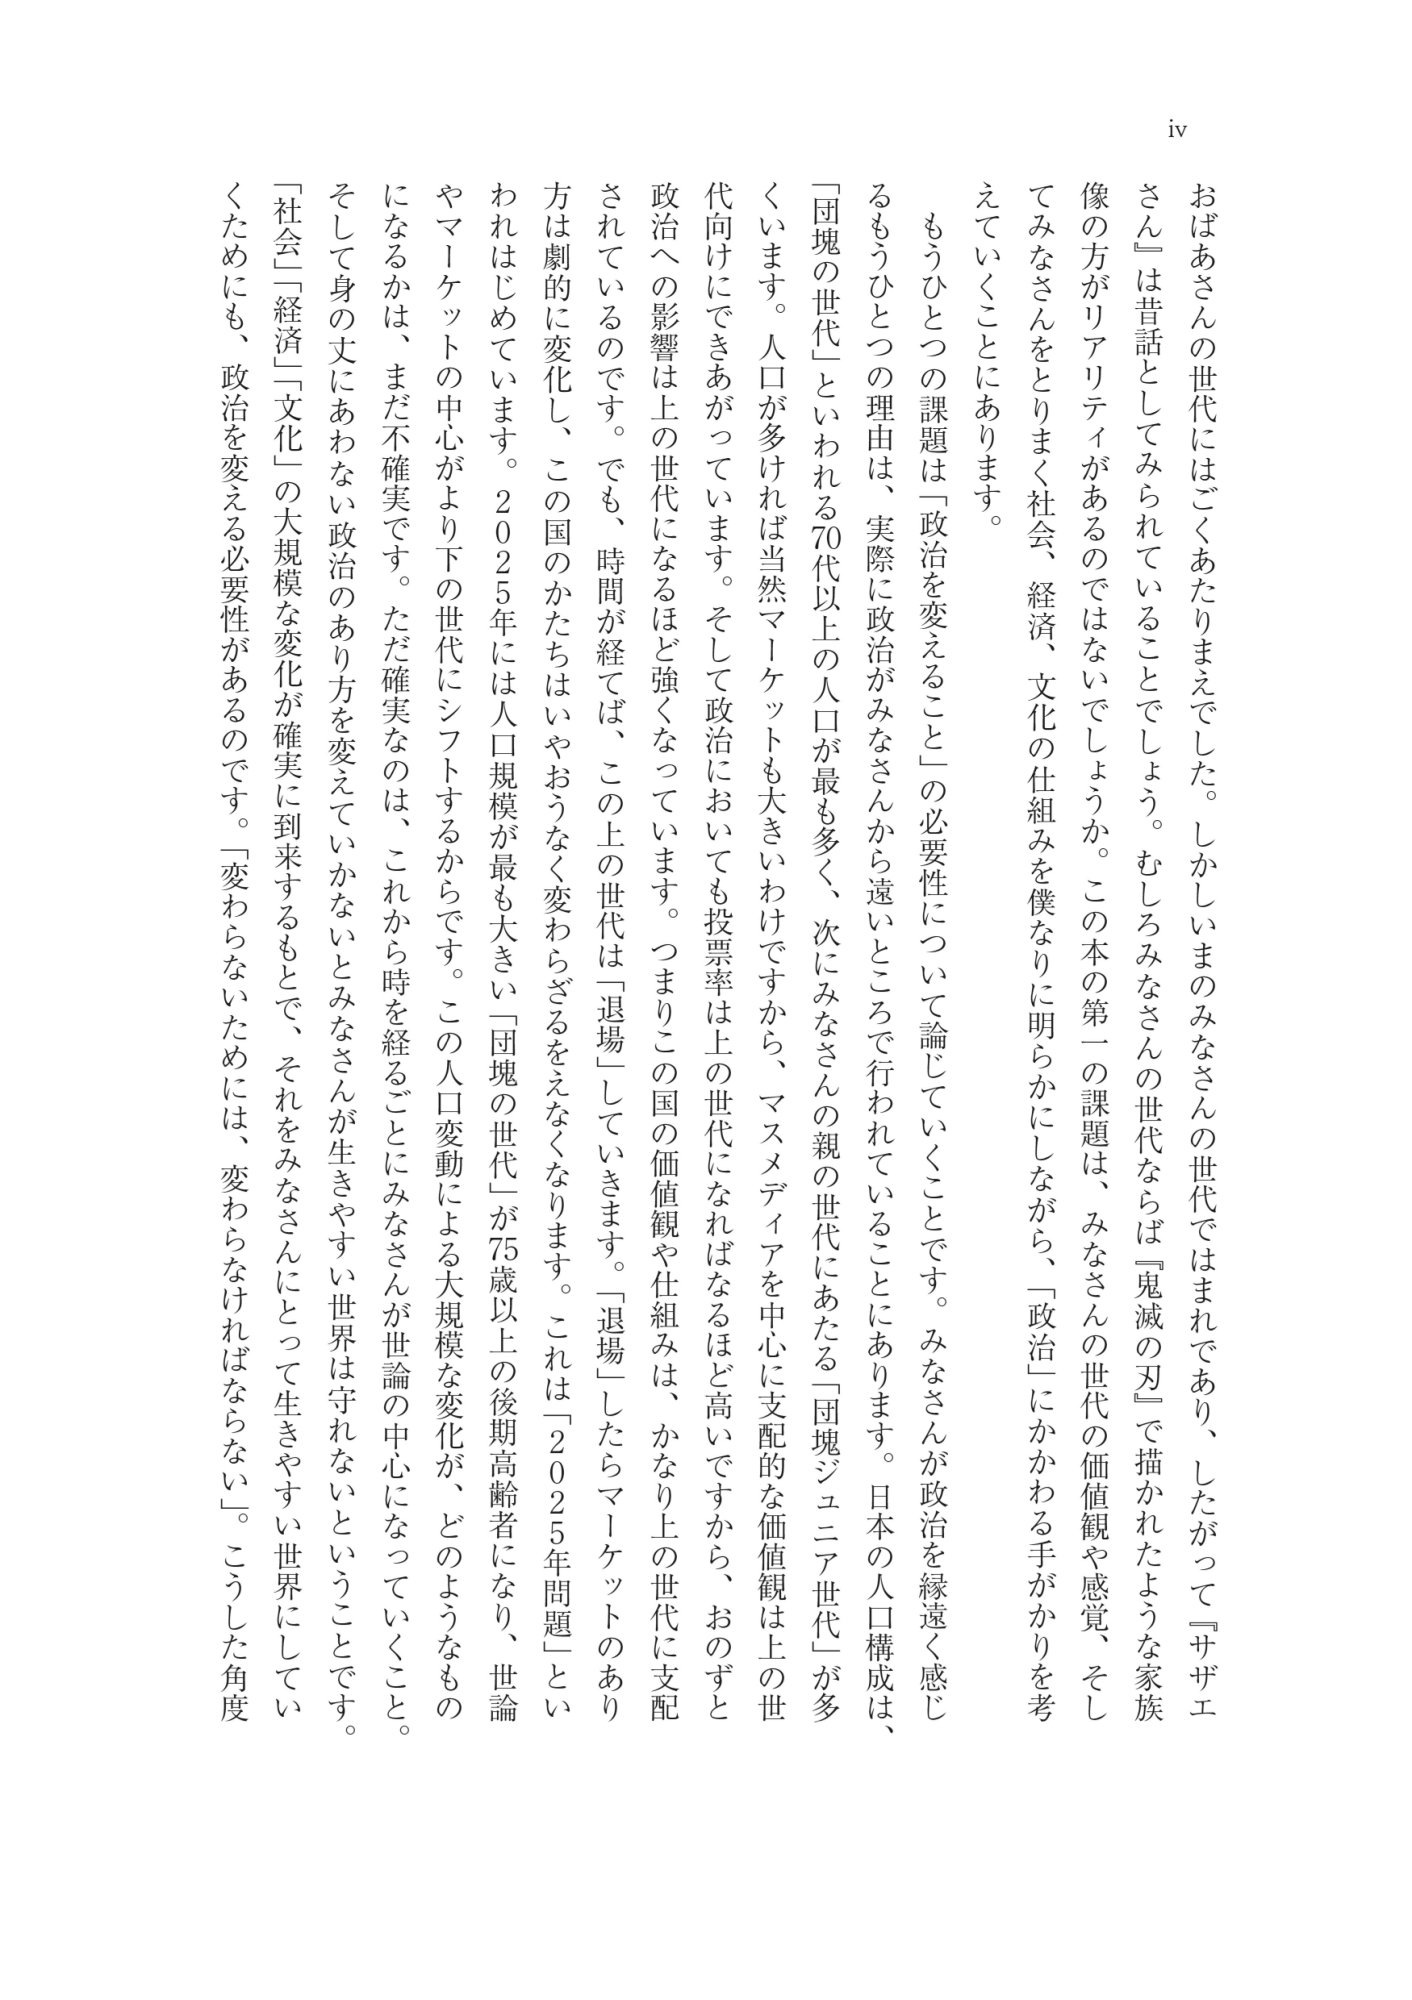 iv
おばあさんの世代にはごくあたりまえでした。しかしいまのみなさんの世代ではまれであり、したがって『サザエ
さん』は昔話としてみられていることでしょう。むしろみなさんの世代ならば『鬼滅の刃』で描かれたような家族
像の方がリアリティがあるのではないでしょうか。この本の第一の課題は、みなさんの世代の価値観や感覚、そし
てみなさんをとりまく社会、経済、文化の仕組みを僕なりに明らかにしながら、「政治」にかかわる手がかりを考
えていくことにあります。
　もうひとつの課題は「政治を変えること」の必要性について論じていくことです。みなさんが政治を縁遠く感じ
るもうひとつの理由は、実際に政治がみなさんから遠いところで行われていることにあります。日本の人口構成は、
「団塊の世代」といわれる70代以上の人口が最も多く、次にみなさんの親の世代にあたる「団塊ジュニア世代」が多
くいます。人口が多ければ当然マーケットも大きいわけですから、マスメディアを中心に支配的な価値観は上の世
代向けにできあがっています。そして政治においても投票率は上の世代になればなるほど高いですから、おのずと
政治への影響は上の世代になるほど強くなっています。つまりこの国の価値観や仕組みは、かなり上の世代に支配
されているのです。でも、時間が経てば、この上の世代は「退場」していきます。「退場」したらマーケットのあり
方は劇的に変化し、この国のかたちはいやおうなく変わらざるをえなくなります。これは「2025年問題」とい
われはじめています。2025年には人口規模が最も大きい「団塊の世代」が75歳以上の後期高齢者になり、世論
やマーケットの中心がより下の世代にシフトするからです。この人口変動による大規模な変化が、どのようなもの
になるかは、まだ不確実です。ただ確実なのは、これから時を経るごとにみなさんが世論の中心になっていくこと。
そして身の丈にあわない政治のあり方を変えていかないとみなさんが生きやすい世界は守れないということです。
「社会」「経済」「文化」の大規模な変化が確実に到来するもとで、それをみなさんにとって生きやすい世界にしてい
くためにも、政治を変える必要性があるのです。「変わらないためには、変わらなければならない」。こうした角度